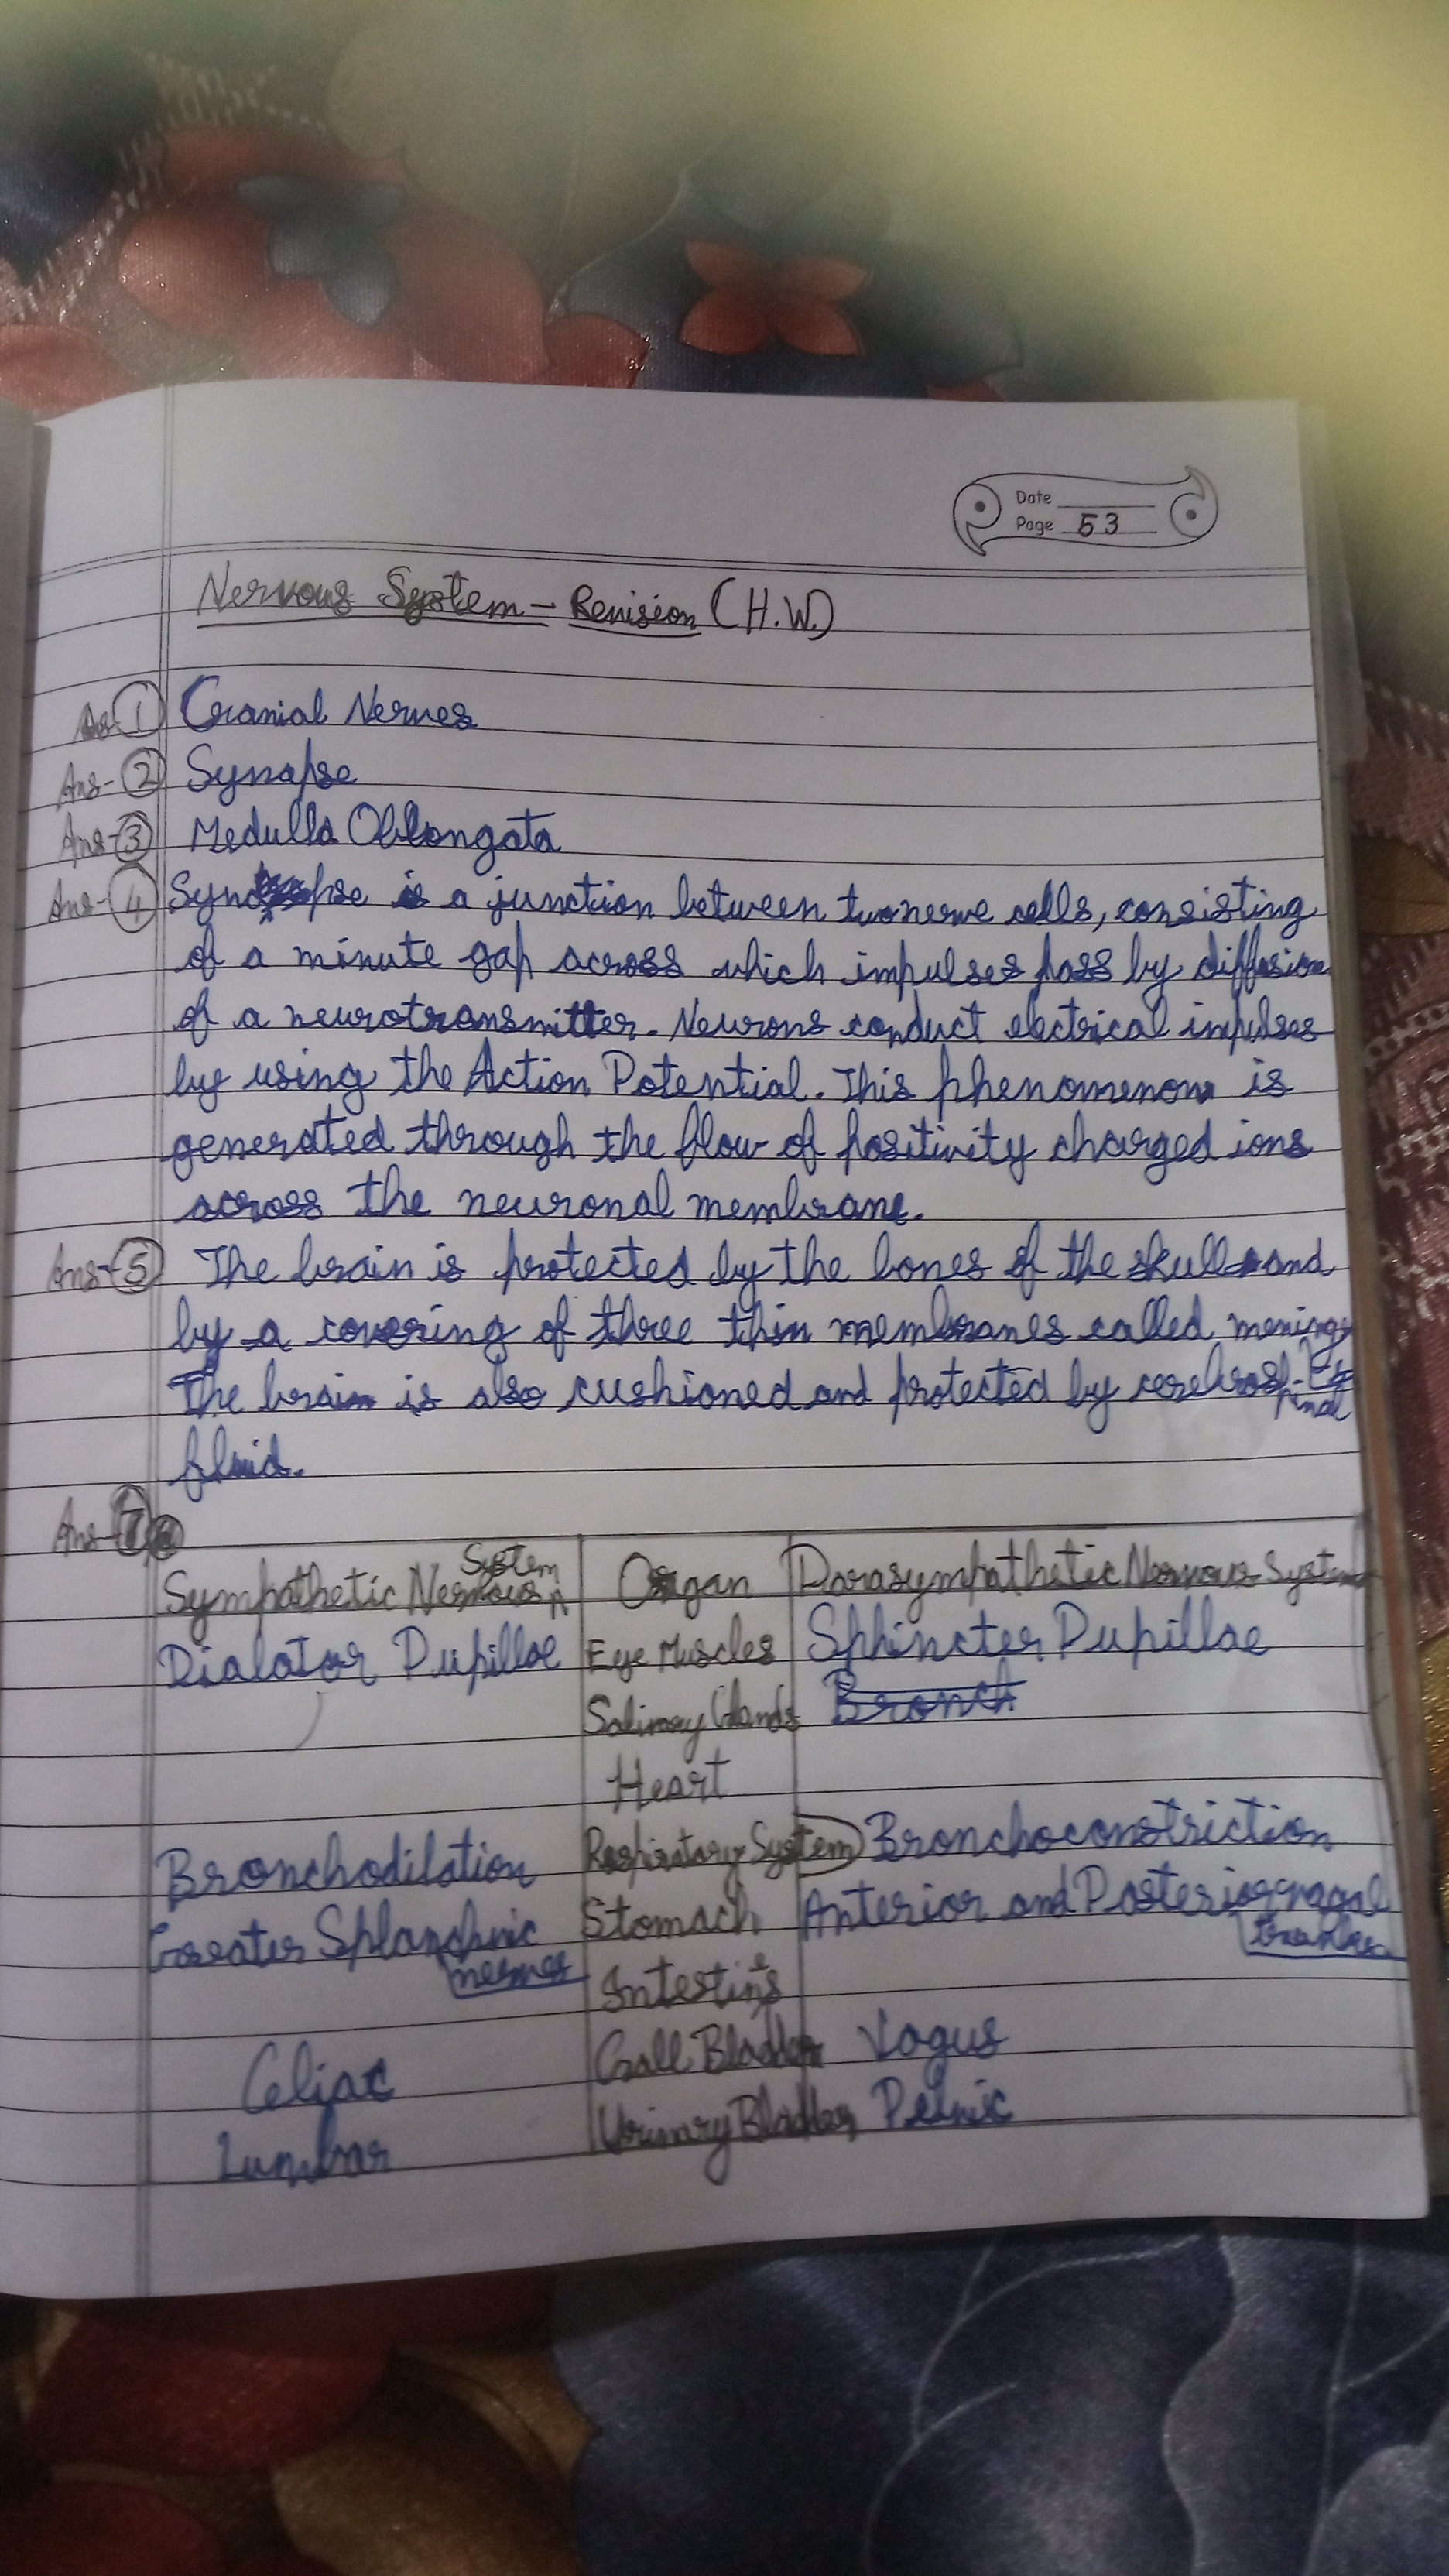 Date
Page 53
Nervous System - Revision (H.W.)
Ans-1 Cranial Nerves
Ans-2 Synapse
Ans-3 Medulla Oblongata
Ans-4 Synapse is a junction between two nerve cells, consisting
of a minute gap across which impulses pass by diffusion
of a neurotransmitter. Neurons conduct electrical impulses
by using the Action Potential. This phenomenon is
generated through the flow of positivity charged ions
across the neuronal membrane.
Ans-5 The brain is protected by the bones of the skull and
by a covering of three thin membranes called meninges
The brain is also cushioned and protected by cerebrospinal
fluid.
Ans-7
Sympathetic Nervous System Organ Parasympathetic Nervous System
Dialator Pupillae Eye Muscles Sphincter Pupillae
Salivary Glands Bronch
Heart
Bronchodilation Respiratory System Bronchoconstriction
Greater Splanchnic nerves Stomach Anterior and Posterior vagal trunks
Intestines
Celiac Gall Bladder Vagus
Lumbar Urinary Bladder Pelvic